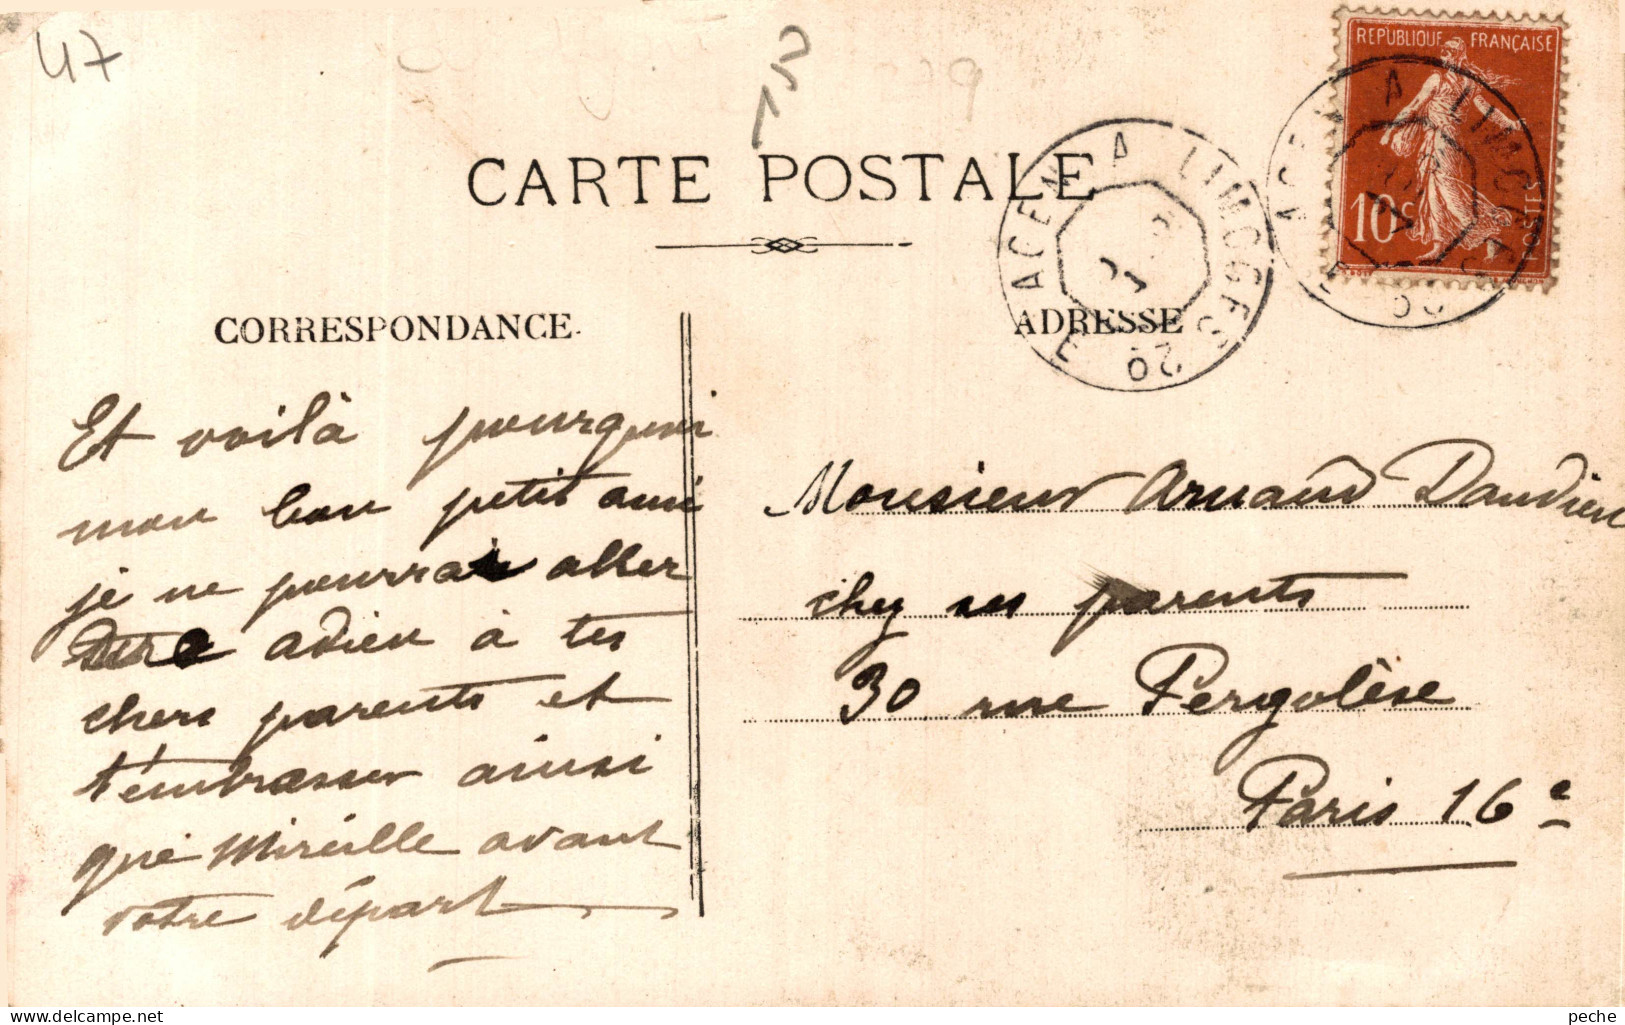 47
13
CARTE POSTALE
REPUBLIQUE FRANÇAISE
10c
POSTES
AGEN A LIMOGES
AGEN A LIMOGES
CORRESPONDANCE.
ADRESSE
Et voilà pourquoi
mon bon petit ami
je ne pourrai aller
dire adieu à tes
chers parents et
t'embrasser ainsi
que Mireille avant
votre départ
Monsieur Arnaud Dandieu
chez ses parents
30 rue Pergolèse
Paris 16e
peche